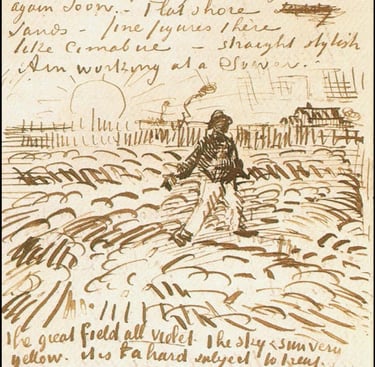 again soon. Flat shore
sands - fine figures there
like Cimabue - straight stylish
Am working at a Sower.
the great field all violet the sky & sun very
yellow. it is a hard subject to treat.